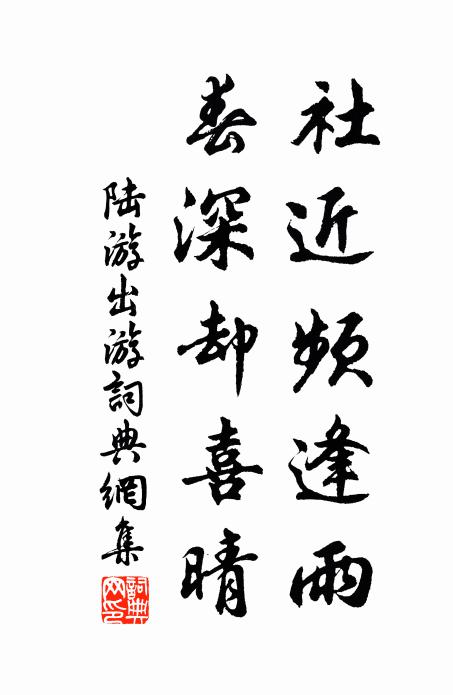 社近頻逢雨
春深却喜晴
陆游出游詞典網集
詞典網印